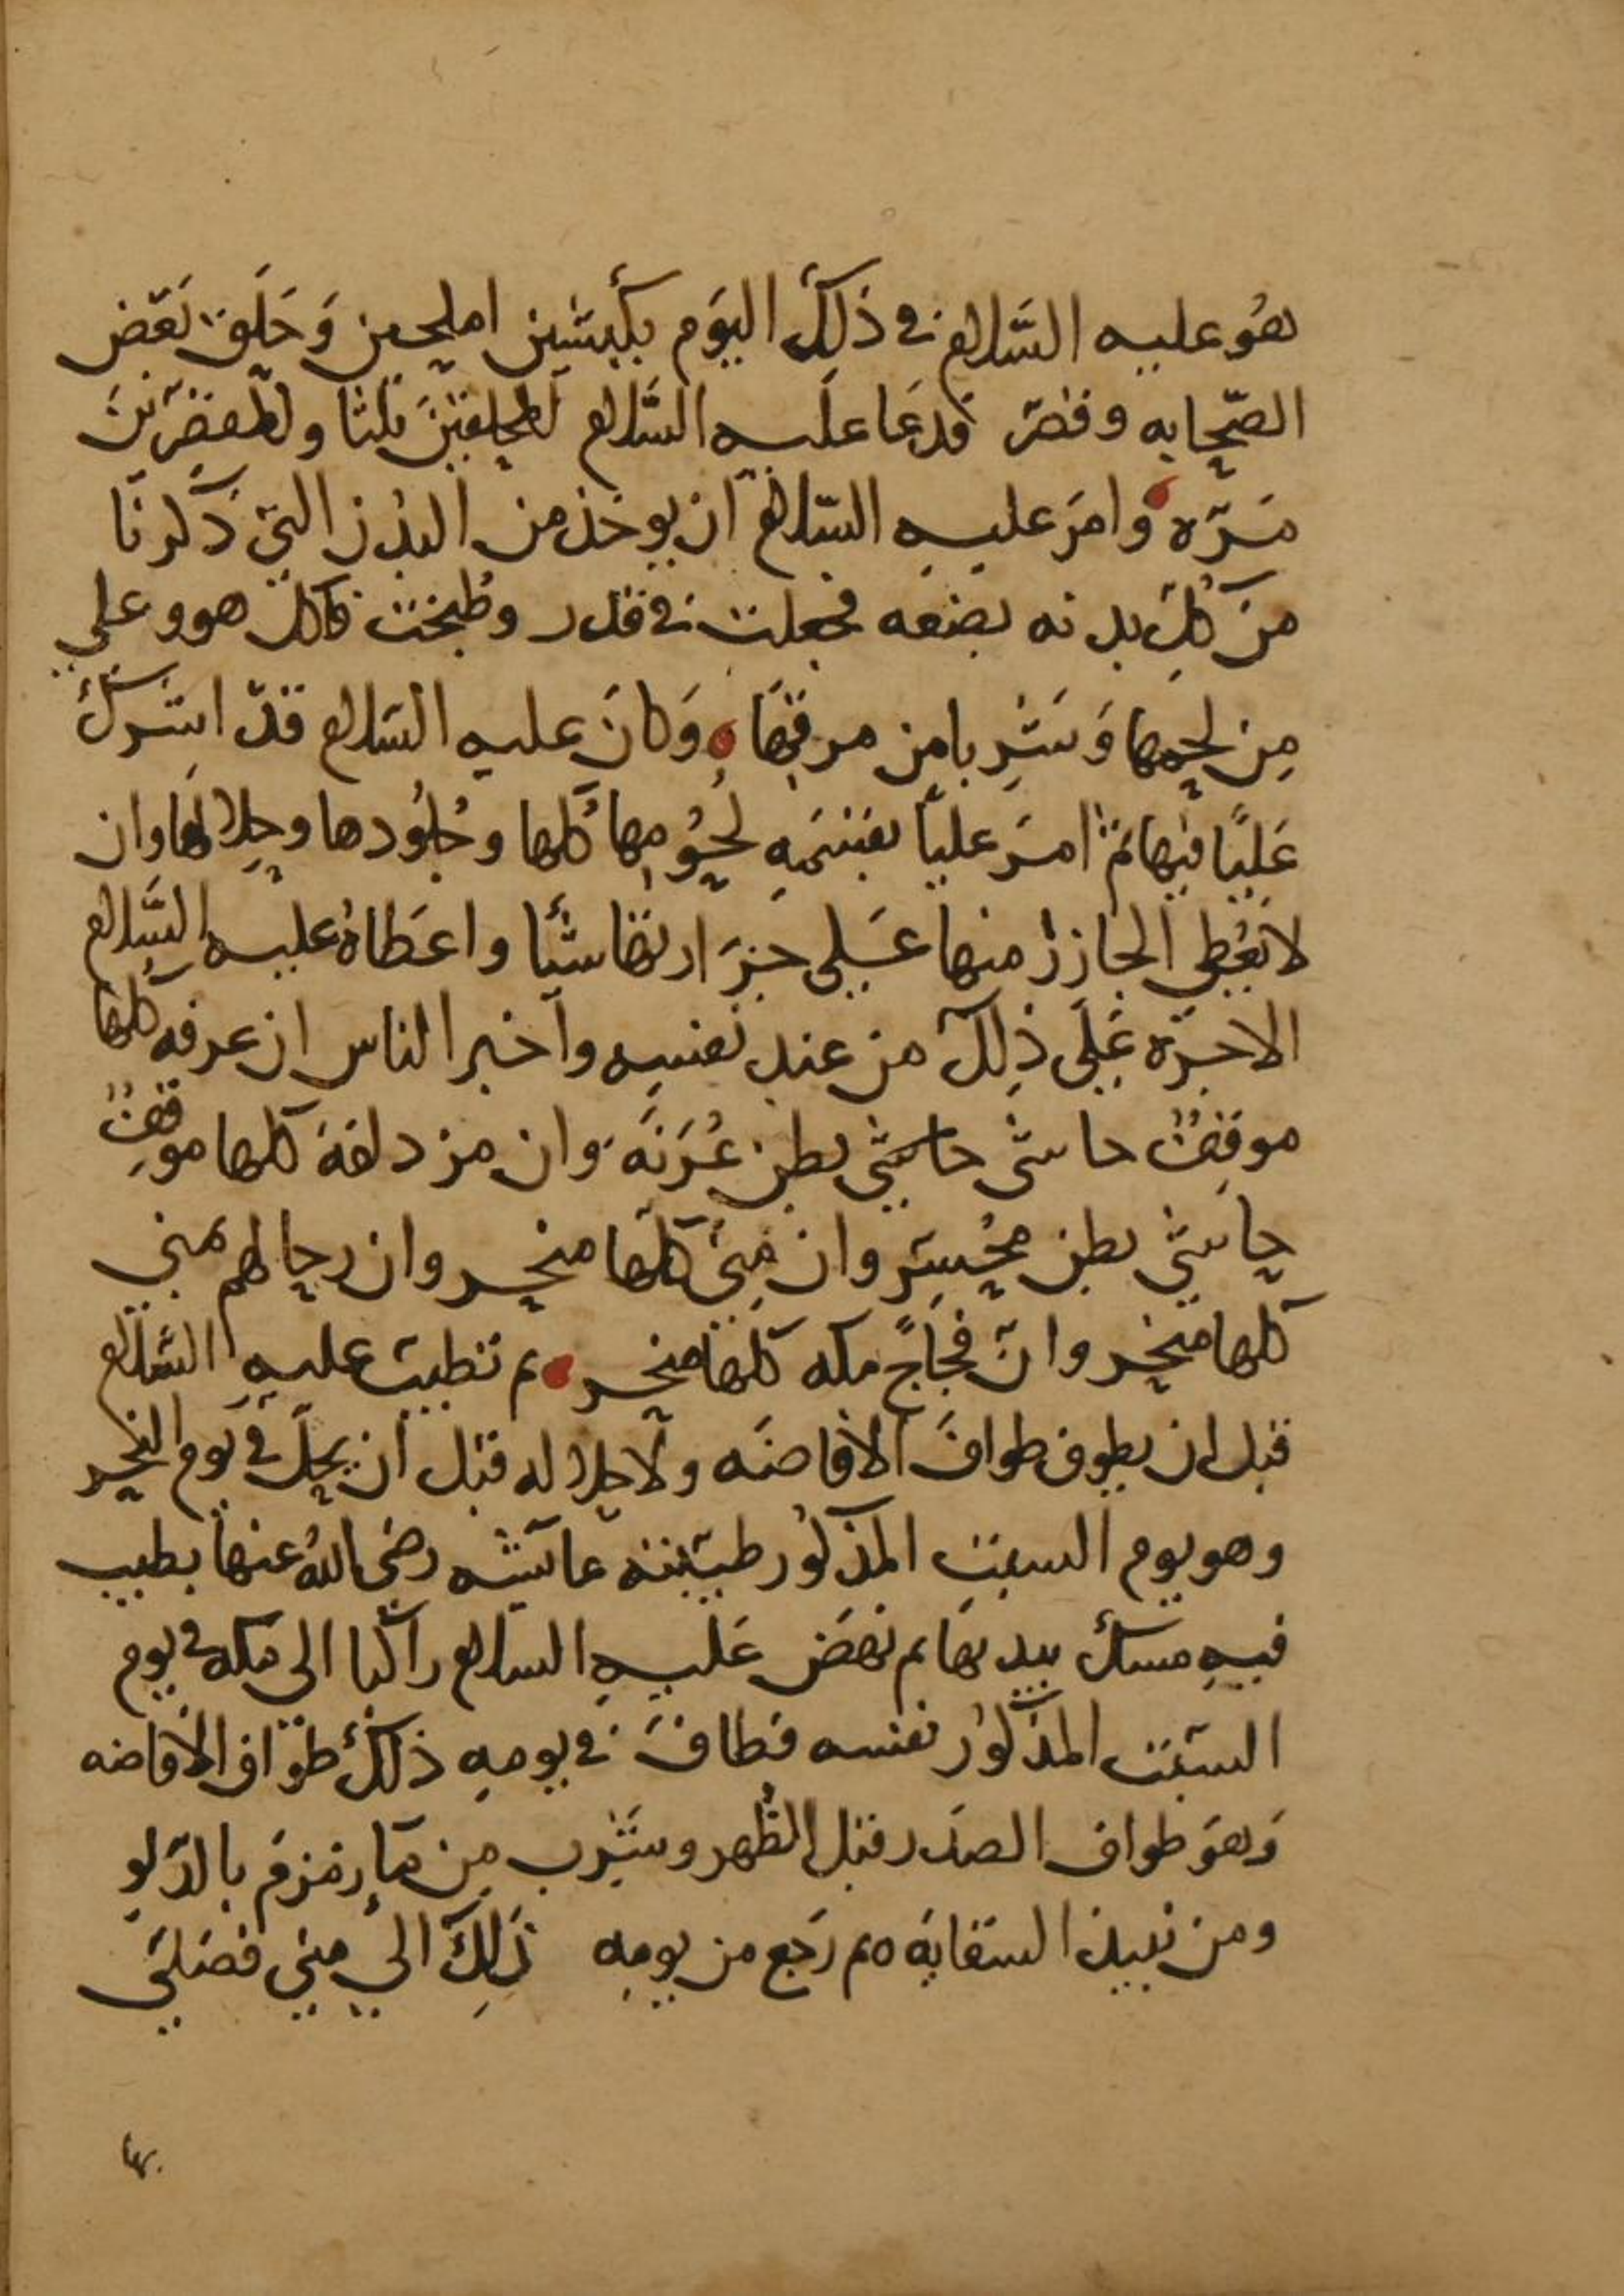 هُو عليه السَّلام في ذَلِكَ اليَوم بكبشين املحين وَحَلَق بَعَض
الصّحابه وقصّر فدعَا علَيه السَّلام للمحلقين ثلثا وللمقصّرينَ
مَرّه وامَر عليهِ السّلام ان يوخذ من البُدن التي ذكرنَا
من كُلِ بدنه بضعه فجعلت في قدر وطُبخت فاكل هو وعلي
مِن لحمها وَشَرِبا من مرقِهَا وَكانَ عليه السَلام قدّ اشرك
عَليًا فيها ثم امرَ علياً بقسَمهِ لُحُومِها كُلها وجُلُودها وجِلالها وان
لا يُعطِي الجازر منها عَلي جزَارتها شَيا واعَطاهُ عليه السَّلام
الاجرَه عَلَى ذِلكَ من عند نفسِه وآخبر الناس ان عرفه كلها
موقفٌ حاشى حاشي بطن عُرَنَه وان مزدلفة كلها موقِفٌ
حاشي بطن مُحُسِّر وان مِنىً كلها منحر وان رحالهم بمنى
كلها منحر وانّ فجاجً مكه كلها منحر ثم تطيبَ عليهِ السَّلام
قبل ان يطوف طوافَ الافاضَه ولاحلاله قبل ان يحِلّ في يَوم النحر
وهو يوم السبتِ المذكُور طيّبته عايّشه رضي اللهُ عنها بطيب
فيهِ مسك بيديها ثم نهضَ عَليهِ السلام راكبا الى مكه في يوم
السّبت المذكُور نفسه فطافَ في يومهِ ذلكَ طواف الافاضه
وَهوَ طواف الصَدر قبل الظُهر وشَرِب مِن مآءِ زمزمَ بالدّلو
ومن نبيذ السقايَه ثم رَجع من يومِه ذَلِكَ اليَ منى فصَلَي